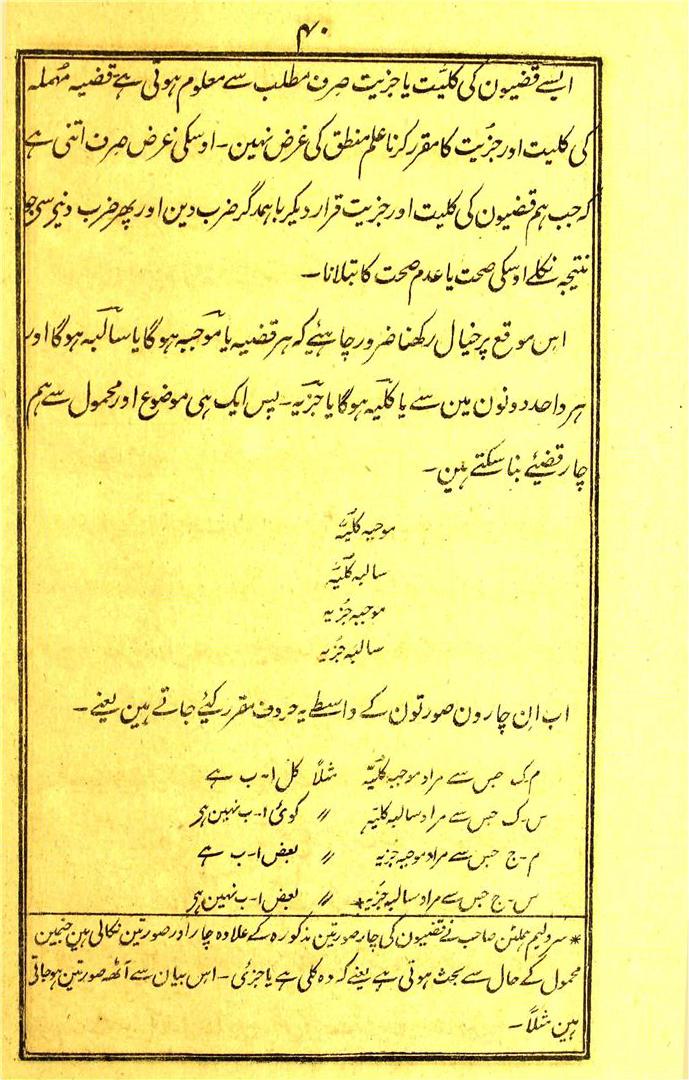 ۴۰
ایسے قضیون کی کلیّت یا جزیت صرف مطلب سے معلوم ہوتی ہے قضیہ مہملہ
کی کلیت اور جزیت کا مقرر کرنا علم منطق کی غرض نہین ۔ اوسکی غرض صرف اتنی ہے
کہ جب ہم قضیون کی کلیت اور جزیت قرار دیکر باہمدگر ضرب دین اور پھر ضرب دینی سی جو
نتیجہ نکلے اوسکی صحت یا عدم صحت کا بتلانا ۔
اس موقع پر خیال رکھنا ضرور چاہیئے کہ ہر قضیہ یا موجبہ ہوگا یا سالبہ ہوگا اور
ہر واحد دونون مین سے یا کلیّہ ہوگا یا جزیہ ۔ پس ایک ہی موضوع اور محمول سے ہم
چار قضیئے بنا سکتے ہین ۔
موجبہ کلیّہ
سالبہ کلیّہ
موجبہ جُزیہ
سالبہ جُزیہ
اب اِن چارون صورتون کے واسطے یہ حروف مقرر کیئے جاتے ہین یعنے ۔
م ۔ ک جس سے مراد موجبہ کلیّہ مثلاً کل ا ۔ ب ہے
س ۔ ک جس سے مراد سالبہ کلیّہ 〃 کوئ ا ۔ ب نہین ہی
م ۔ ج جس سے مراد موجبہ جزیہ 〃 بعض ا ۔ ب ہے
س ۔ ج جس سے مراد سالبہ جزیہ* 〃 بعض ا ۔ ب نہین ہی
* سر ولیم ہملٹن صاحب نے قضیون کی چار صورتین مذکورہ کے علاوہ چار اور صورتین نکالی ہین جنمین
محمول کے حال سے بحث ہوتی ہے یعنے کہ وہ کلی ہے یا جزئی ۔ اس بیان سے آٹھ صورتین ہو جاتی
ہین مثلاً ۔